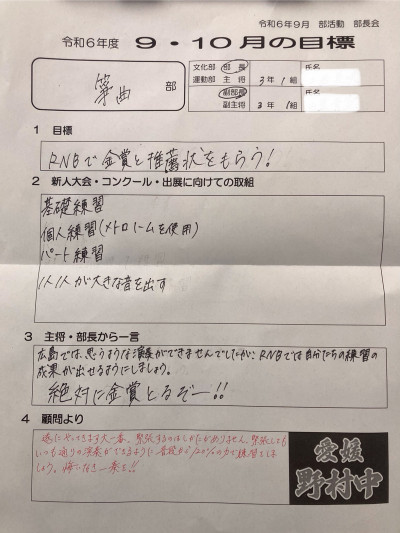 令和6年9月　部活動　部長会
令和6年度　9・10月の目標
箏曲　部
文化部　部長　3年1組　氏名
運動部　主将
副部長　3年1組　氏名
副主将
1　目標
RNBで金賞と推薦状をもらう!
2　新人大会・コンクール・出展に向けての取組
基礎練習
個人練習(メトロノームを使用)
パート練習
1人1人が大きな音を出す
3　主将・部長から一言
広島では、思うような演奏ができませんでしたが、RNBでは自分たちの練習の
成果が出せるようにしましょう。
絶対に金賞とるぞー!!
4　顧問より
遂にやってきます大一番、緊張するのはしかたがありません。緊張しても
いつも通りの演奏ができるように普段から120%の力で練習をしま
しょう。悔いなき一奏を!!
愛媛
野村中